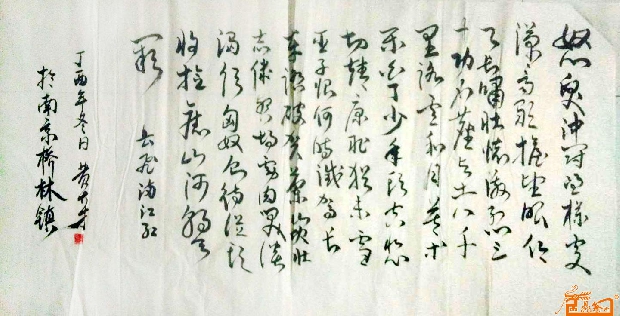 怒发冲冠凭栏处
潇雨歇抬望眼仰
天长啸壮怀激烈三
十功名尘与土八千
里路云和月莫等
闲白了少年头空悲
切靖康耻犹未雪
臣子恨何时灭驾长
车踏破贺兰山缺壮
志饥餐胡虏肉笑谈
渴饮匈奴血待从头
收拾旧山河朝天
阙 岳飞满江红
丁酉年冬日
於南京桥林镇